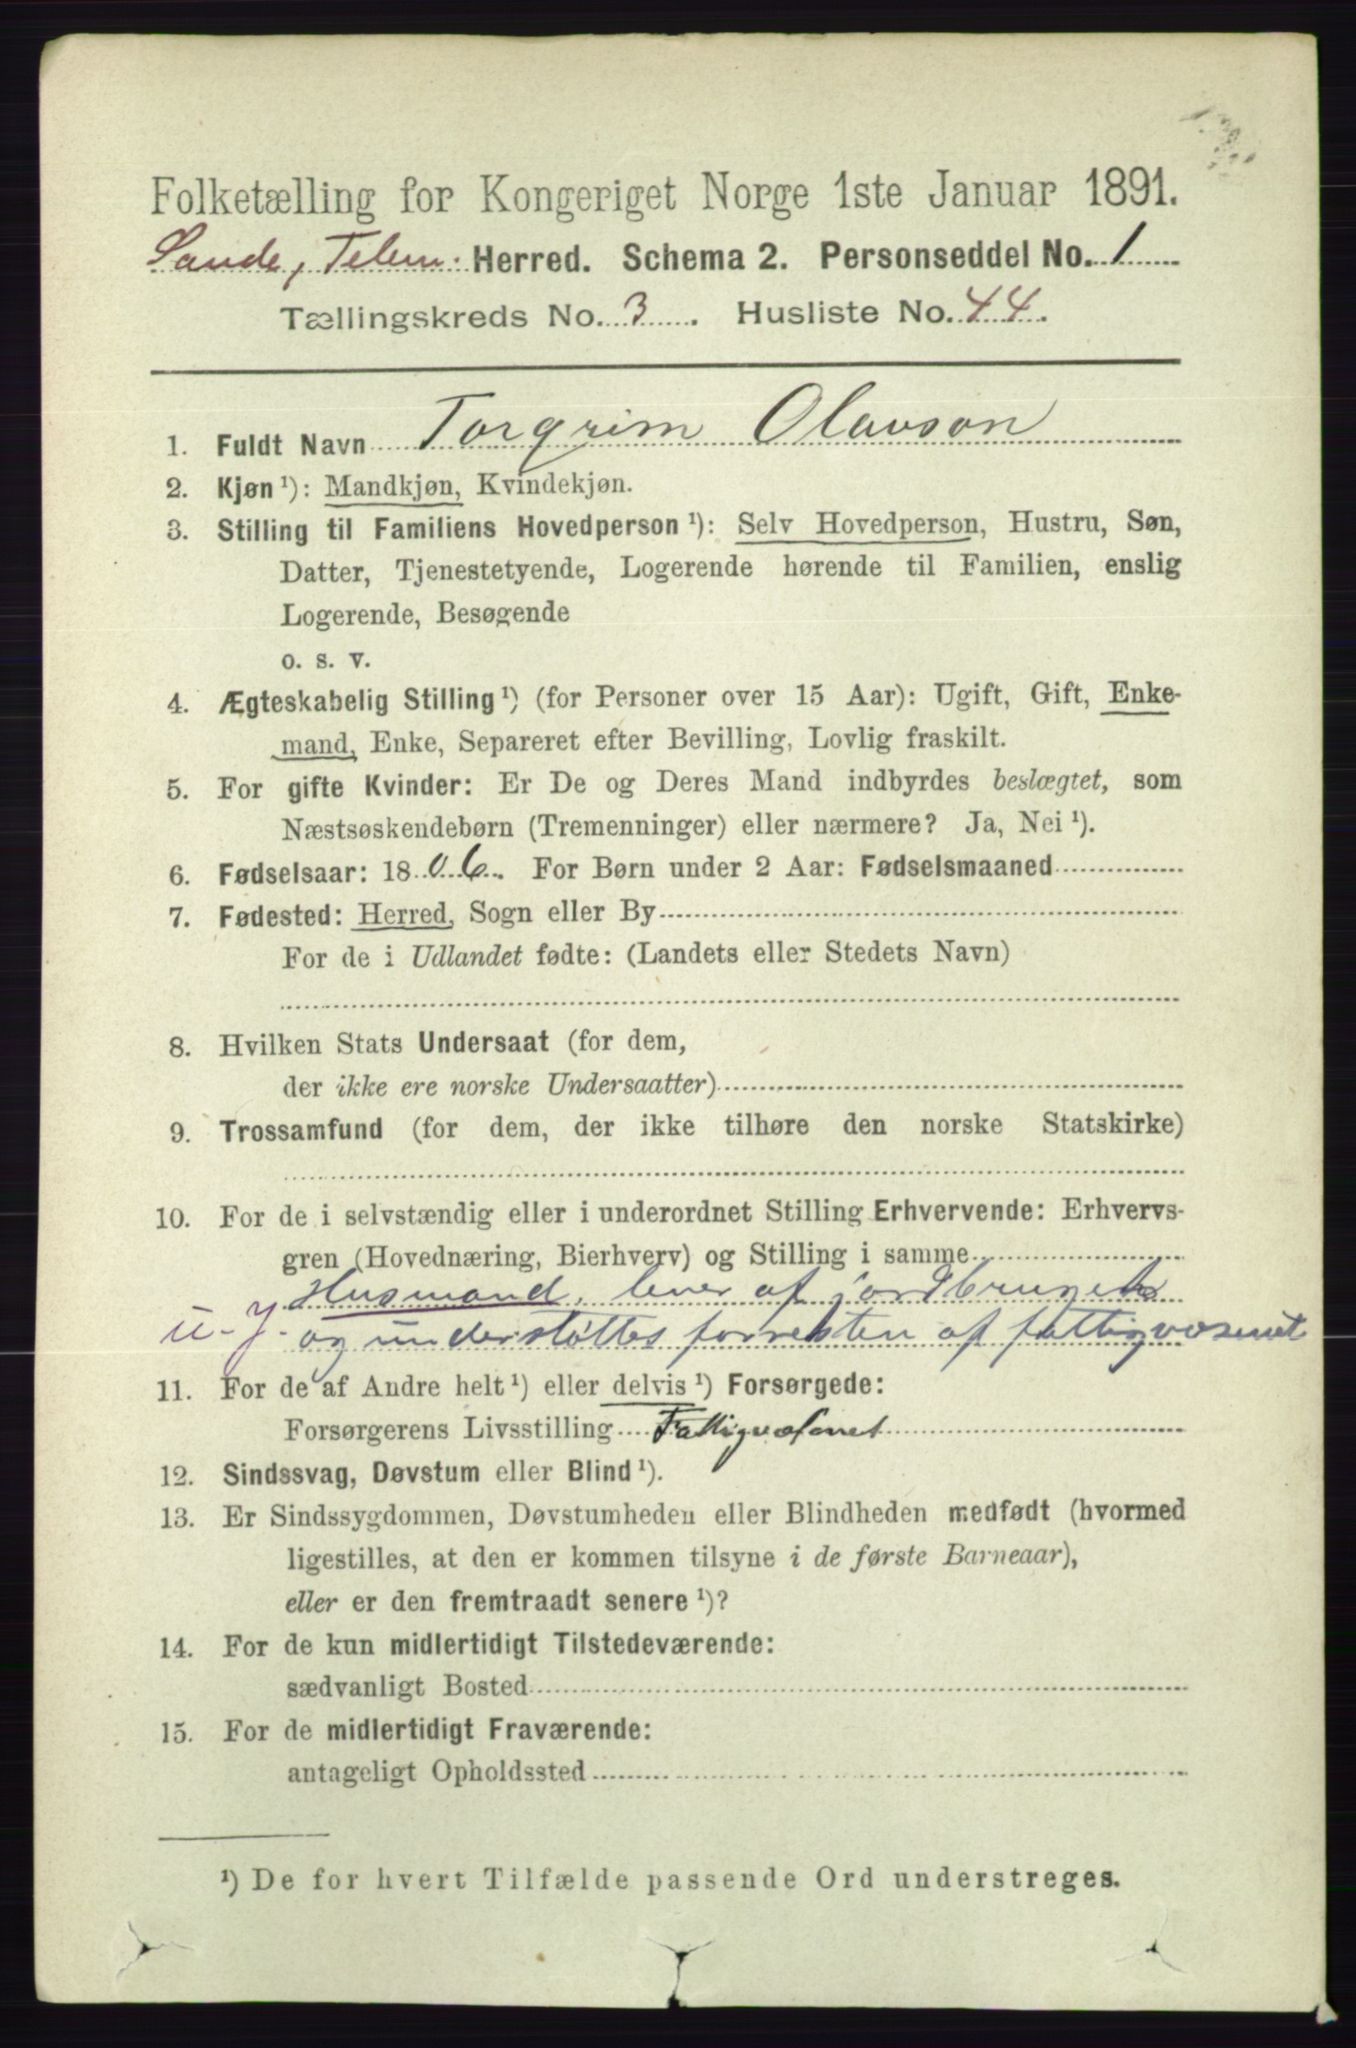 Folketælling for Kongeriget Norge 1ste Januar 1891.
Sande, Telem. Herred. Schema 2. Personseddel No. 1
Tællingskreds No. 3. Husliste No. 44.
1. Fuldt Navn Torgrim Olavson
2. Kjøn ¹): Mandkjøn, Kvindekjøn.
3. Stilling til Familiens Hovedperson ¹): Selv Hovedperson, Hustru, Søn,
Datter, Tjenestetyende, Logerende hørende til Familien, enslig
Logerende, Besøgende
o. s. v.
4. Ægteskabelig Stilling ¹) (for Personer over 15 Aar): Ugift, Gift, Enke-
mand, Enke, Separeret efter Bevilling, Lovlig fraskilt.
5. For gifte Kvinder: Er De og Deres Mand indbyrdes beslægtet, som
Næstsøskendebørn (Tremenninger) eller nærmere? Ja, Nei ¹).
6. Fødselsaar: 1806. For Børn under 2 Aar: Fødselsmaaned
7. Fødested: Herred, Sogn eller By
For de i Udlandet fødte: (Landets eller Stedets Navn)
8. Hvilken Stats Undersaat (for dem,
der ikke ere norske Undersaatter)
9. Trossamfund (for dem, der ikke tilhøre den norske Statskirke)
10. For de i selvstændig eller i underordnet Stilling Erhvervende: Erhvervs-
gren (Hovednæring, Bierhverv) og Stilling i samme
Husmand, lever af jordbruget
u. J. og understøttes forresten af fattigvæsenet
11. For de af Andre helt ¹) eller delvis ¹) Forsørgede:
Forsørgerens Livsstilling Fattigvæsenet
12. Sindssvag, Døvstum eller Blind ¹).
13. Er Sindssygdommen, Døvstumheden eller Blindheden medfødt (hvormed
ligestilles, at den er kommen tilsyne i de første Barneaar),
eller er den fremtraadt senere ¹)?
14. For de kun midlertidigt Tilstedeværende:
sædvanligt Bosted
15. For de midlertidigt Fraværende:
antageligt Opholdssted
¹) De for hvert Tilfælde passende Ord understreges.